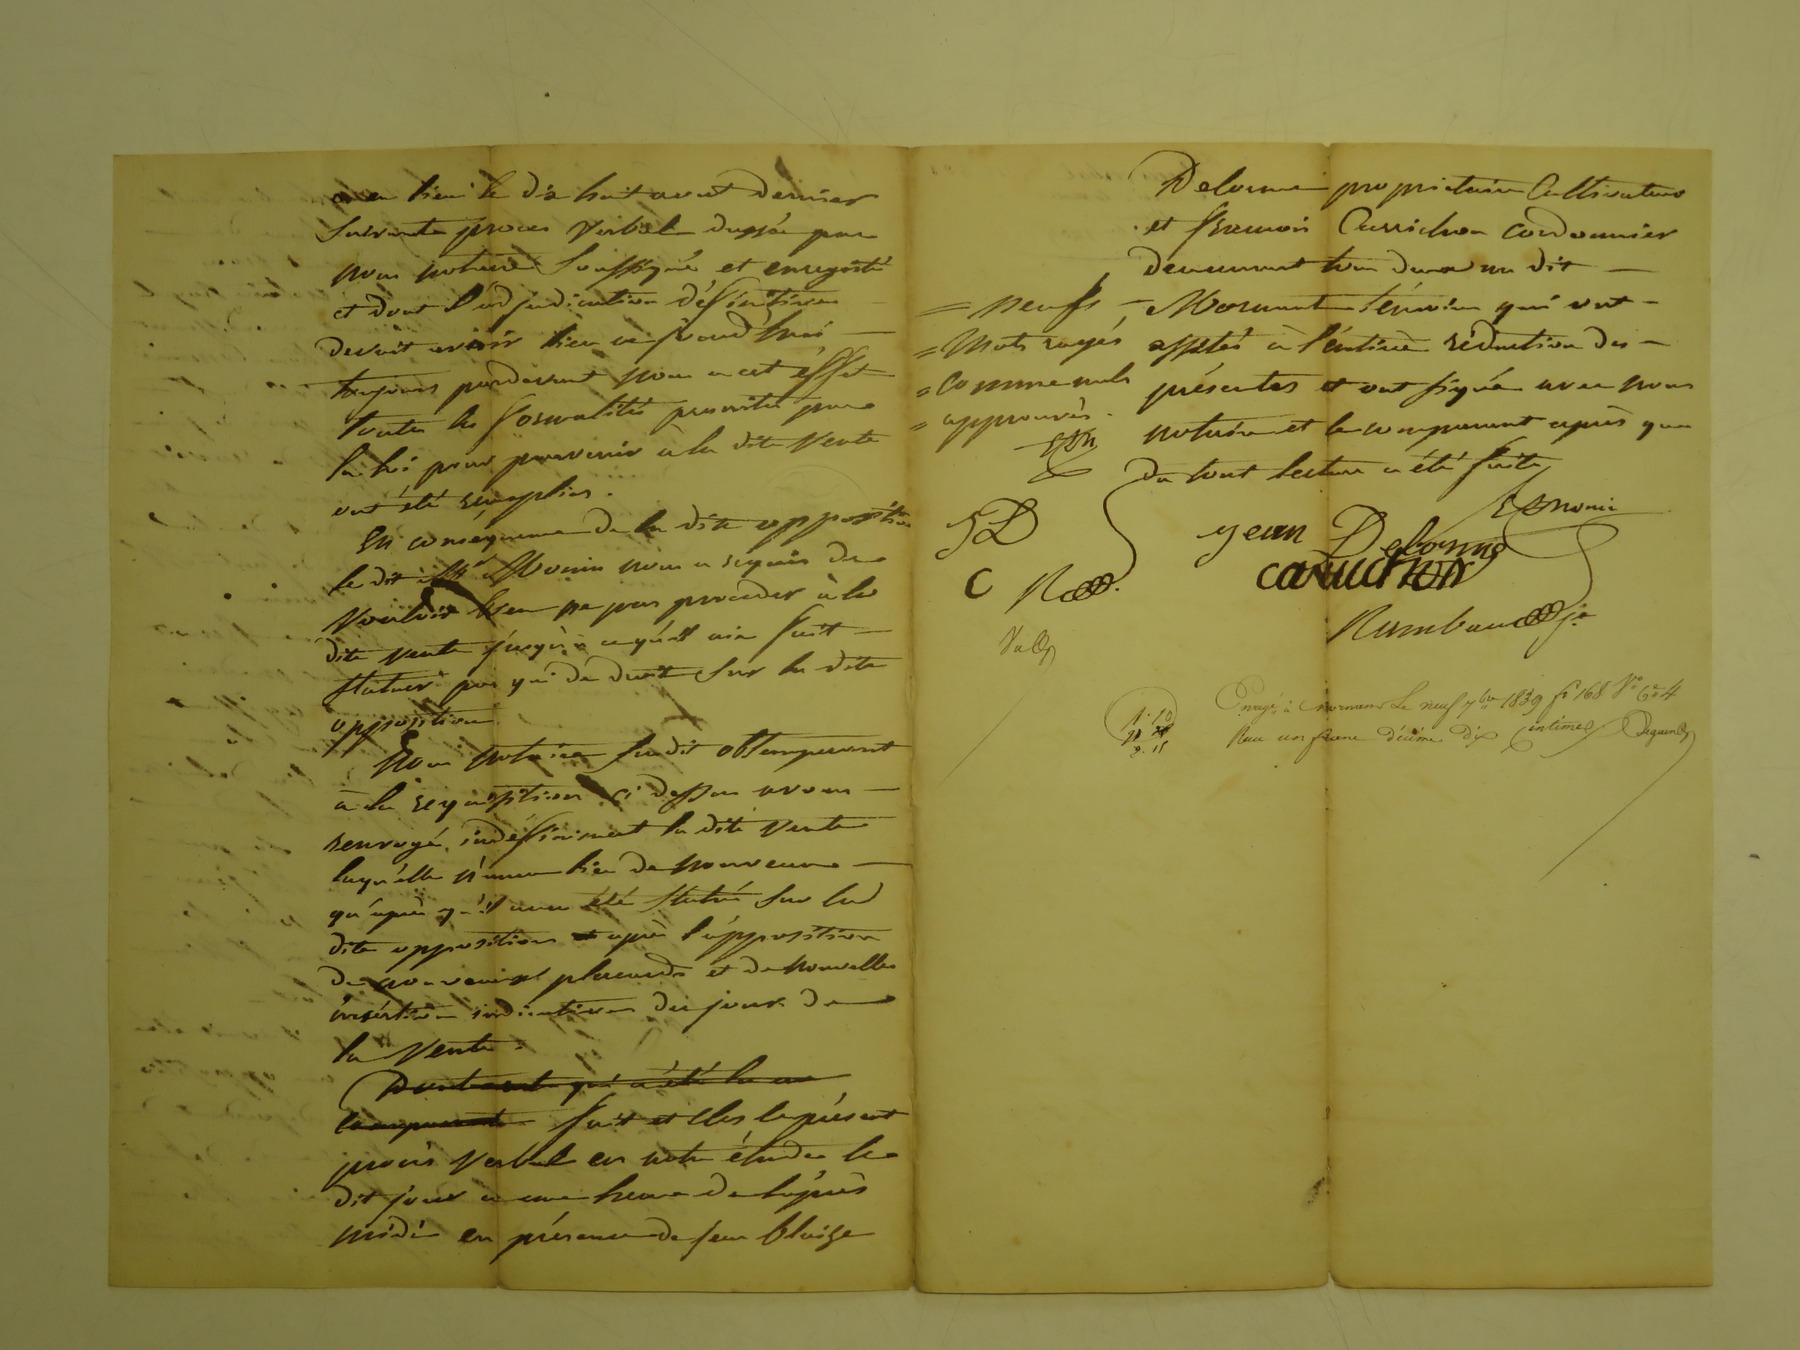 a eu lieu le dix huit avout dernier
suivant proces verbal dressée par
nous notaire soussigné et enregistré
et dont l'adjudication définitive
devoit avoir lieu ce jourd'hui —
toujours pardevant nous a cet éffet
toutes les formalités prescrites par
la loi pour parvenir à la dite vente
ont été remplies.
En conséquence de la dite opposition
le dit Me nous a requis de
vouloir bien ne pas procéder à la
dite vente jusqu'à ce qu'il aie fait —
statuer par qui de droit sur la dite
opposition.
Nous notaire susdit obtemperant
à la requisition ci dessus avons —
renvoyé indéffiniment la dite vente
laqu'elle n'aura lieu de nouveau —
qu'apres qu'il aura été statué sur la
dite opposition et après l'apposition
de nouveaux placards et de nouvelles
insértion indicatives du jour de
la vente.
Dont acte qui a été lu au
comparant fait et clos le présent
procès verbal en notre étude le
dit jour a une heure de l'après
midi en présence de Jean blaize
Delorme propriétaire Cultivateur
et francois Caruchon cordonnier
demeurant tous deux au dit —
Mornant témoins qui ont —
appelés à l'entière rédaction des —
présentes et ont signé avec nous
notaire et le comparant après que
du tout lecture a été faite
= neufs —
= Mots rayés
= comme nuls
= approuvés.
JD
C R
jean Delorme
caruchon
Rambaud jne
1.10
2.15
Enregé à Mornant Le neuf 7bre 1839 fo 168 Vo Ce 4
Reçu un franc décime dix centimes